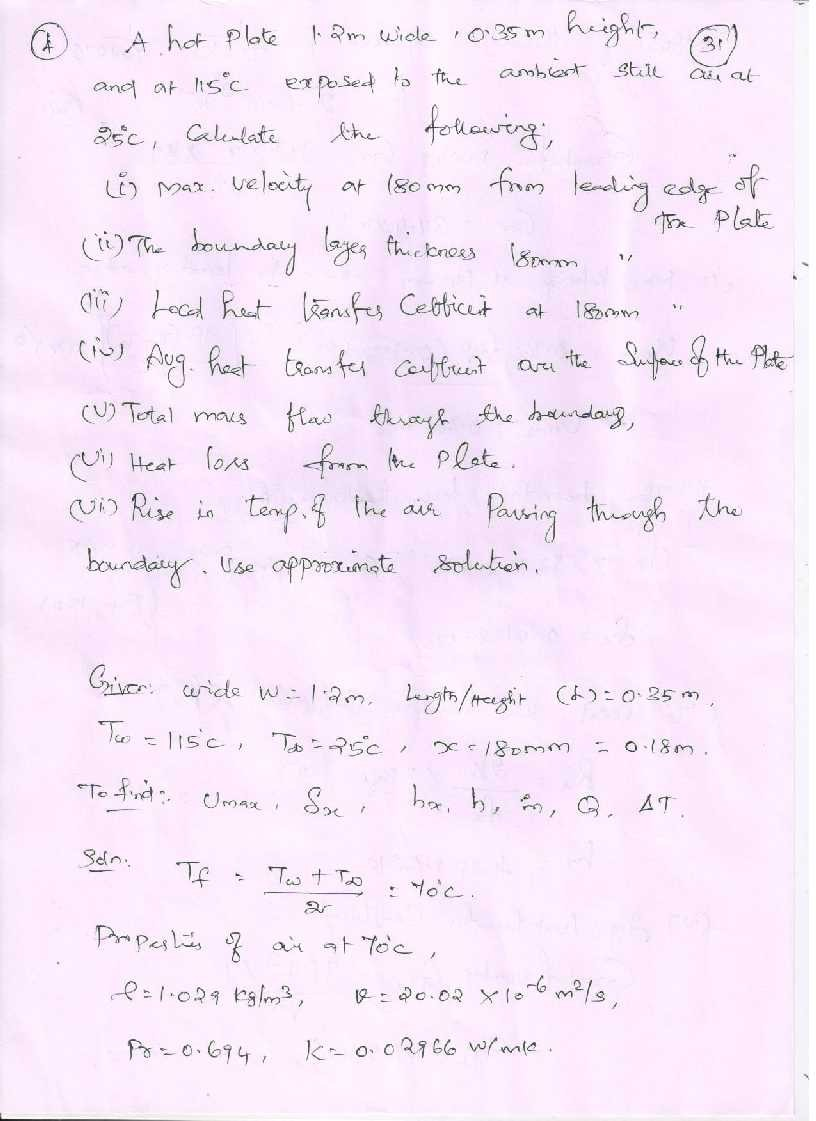 4 A hot Plate 1.2m wide, 0.35m height, 31
and at 115°C exposed to the ambient still air at
25°C, Calculate the following;
(i) Max. Velocity at 180mm from leading edge of
the Plate
(ii) The boundary layer thickness 180mm "
(iii) Local heat transfer Cefficeit at 180mm "
(iv) Avg. heat transfer coefficient over the Surface of the Plate
(v) Total mass flow through the boundary,
(vi) Heat loss from the Plate.
(vii) Rise in temp. of the air Passing through the
boundary. Use approximate solution.
Given: wide W = 1.2m, Length/Height (L) = 0.35m,
Tω = 115°C, T∞ = 25°C, x = 180mm = 0.18m.
To find: Umax, δx, hx, h, ṁ, Q, ΔT.
Soln: Tf = Tω + T∞ / 2 = 70°C.
Properties of air at 70°C,
ρ = 1.029 kg/m³, ν = 20.02 × 10⁻⁶ m²/s,
Pr = 0.694, K = 0.02966 W/mK.